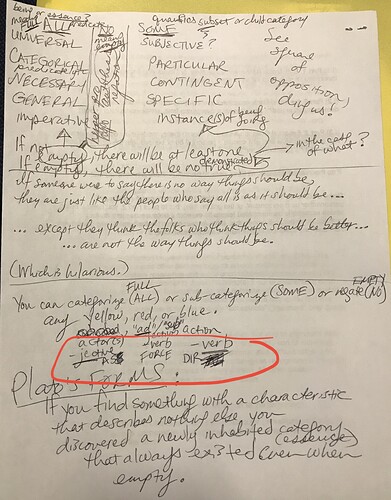 being or essence?
quantifies subset or child category
ALL
NO
SOME
UNIVERSAL
SUBJECTIVE?
See
square
of
opposition,
CATEGORICAL
PARTICULAR
NECESSARY
CONTINGENT
GENERAL
SPECIFIC
imperative
instance(s) of being
doing
If not empty, there will be at least one
demonstrated
in the catg
of what?
If empty, there will be no true
If someone were to say there is no way things should be,
they are just like the people who say all is as it should be...
... except they think the folks who think things should be better...
... are not the way things should be.
(Which is hilarious.)
FULL
EMPTY
You can categorize (ALL) or sub-categorize (SOME) or negate (NO)
any yellow, red, or blue.
action
actor(s)
verb
verb
FORCE
DIR
Plato's FORMS:
If you find something with a characteristic
that describes nothing else, you
discovered a newly inhabited category
(essence)
that always existed even when
empty.